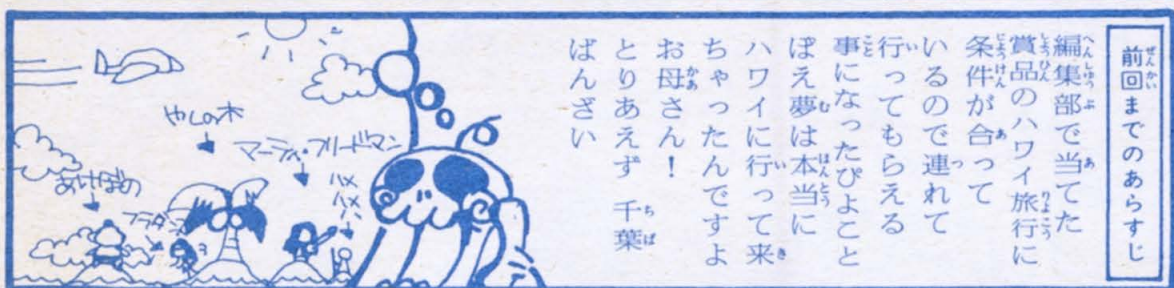 前回までのあらすじ
編集部で当てた
賞品のハワイ旅行に
条件が合って
いるので連れて
行ってもらえる
事になったぴよこと
ぽえ夢は本当に
ハワイに行って来
ちゃったんですよ
お母さん!
とりあえず 千葉
ばんざい
マーティ・フリードマン
ハメハメハ
やしの木
フラダンス
あけぼの